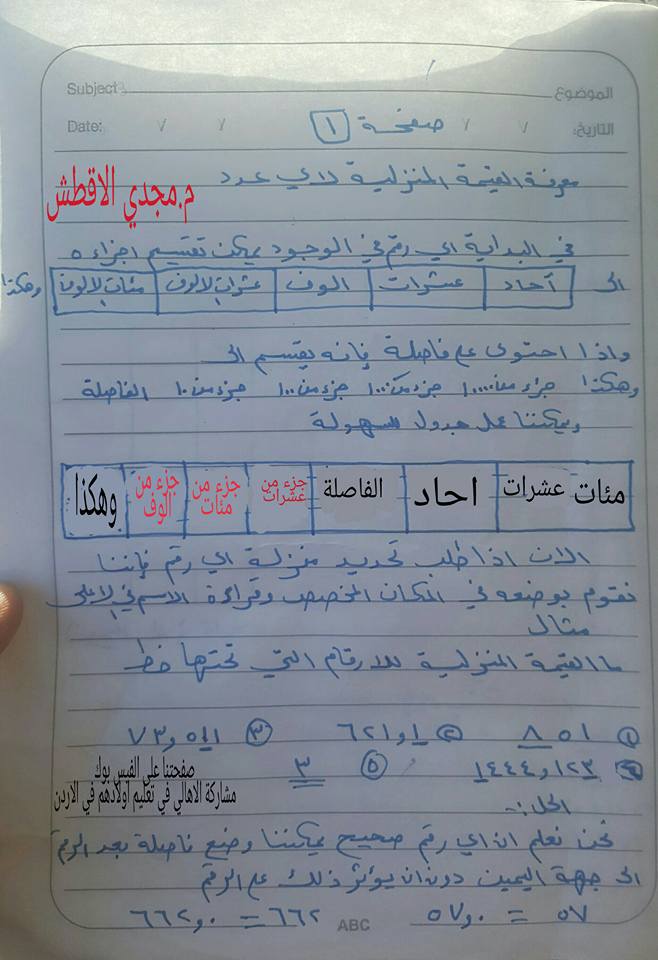 Subject: الموضوع
Date: / / صفحة ١ / / التاريخ:
معرفة القيمة المنزلية لاي عدد
م.مجدي الاقطش
في البداية اي رقم في الوجود يمكن تقسيم اجزاءه
الى آحاد عشرات الوف عشرات الالوف مئات الالوف وهكذا
واذا احتوى على فاصلة فإنه يقسم الى
وهكذا جزء من ١٠٠٠٠ جزء من ١٠٠٠ جزء من ١٠٠ جزء من ١٠ الفاصلة
ويمكننا عمل جدول لسهولة
مئات عشرات احاد الفاصلة جزء من عشرات جزء من مئات جزء من الوف وهكذا
الان اذا طلب تحديد منزلة اي رقم فإننا
نقوم بوضعه في المكان المخصص وقراءة الاسم في الاعلى
مثال
ما القيمة المنزلية للارقام التي تحتها خط
١ ٨٥١ ٢ ٦٢١و١ ٣ ٧٣و٥١١
٤ ١٤٤٤و١٢٣ ٥ ٣
صفحتنا على الفيس بوك
مشاركة الاهالي في تعليم اولادهم في الاردن
الحل:-
نحن نعلم ان اي رقم صحيح يمكننا وضع فاصلة بعد الرقم
الى جهة اليمين دون ان يؤثر ذلك على الرقم
٥٧ = ٥٧و٠ ٦٦٢ = ٦٦٢و٠
ABC